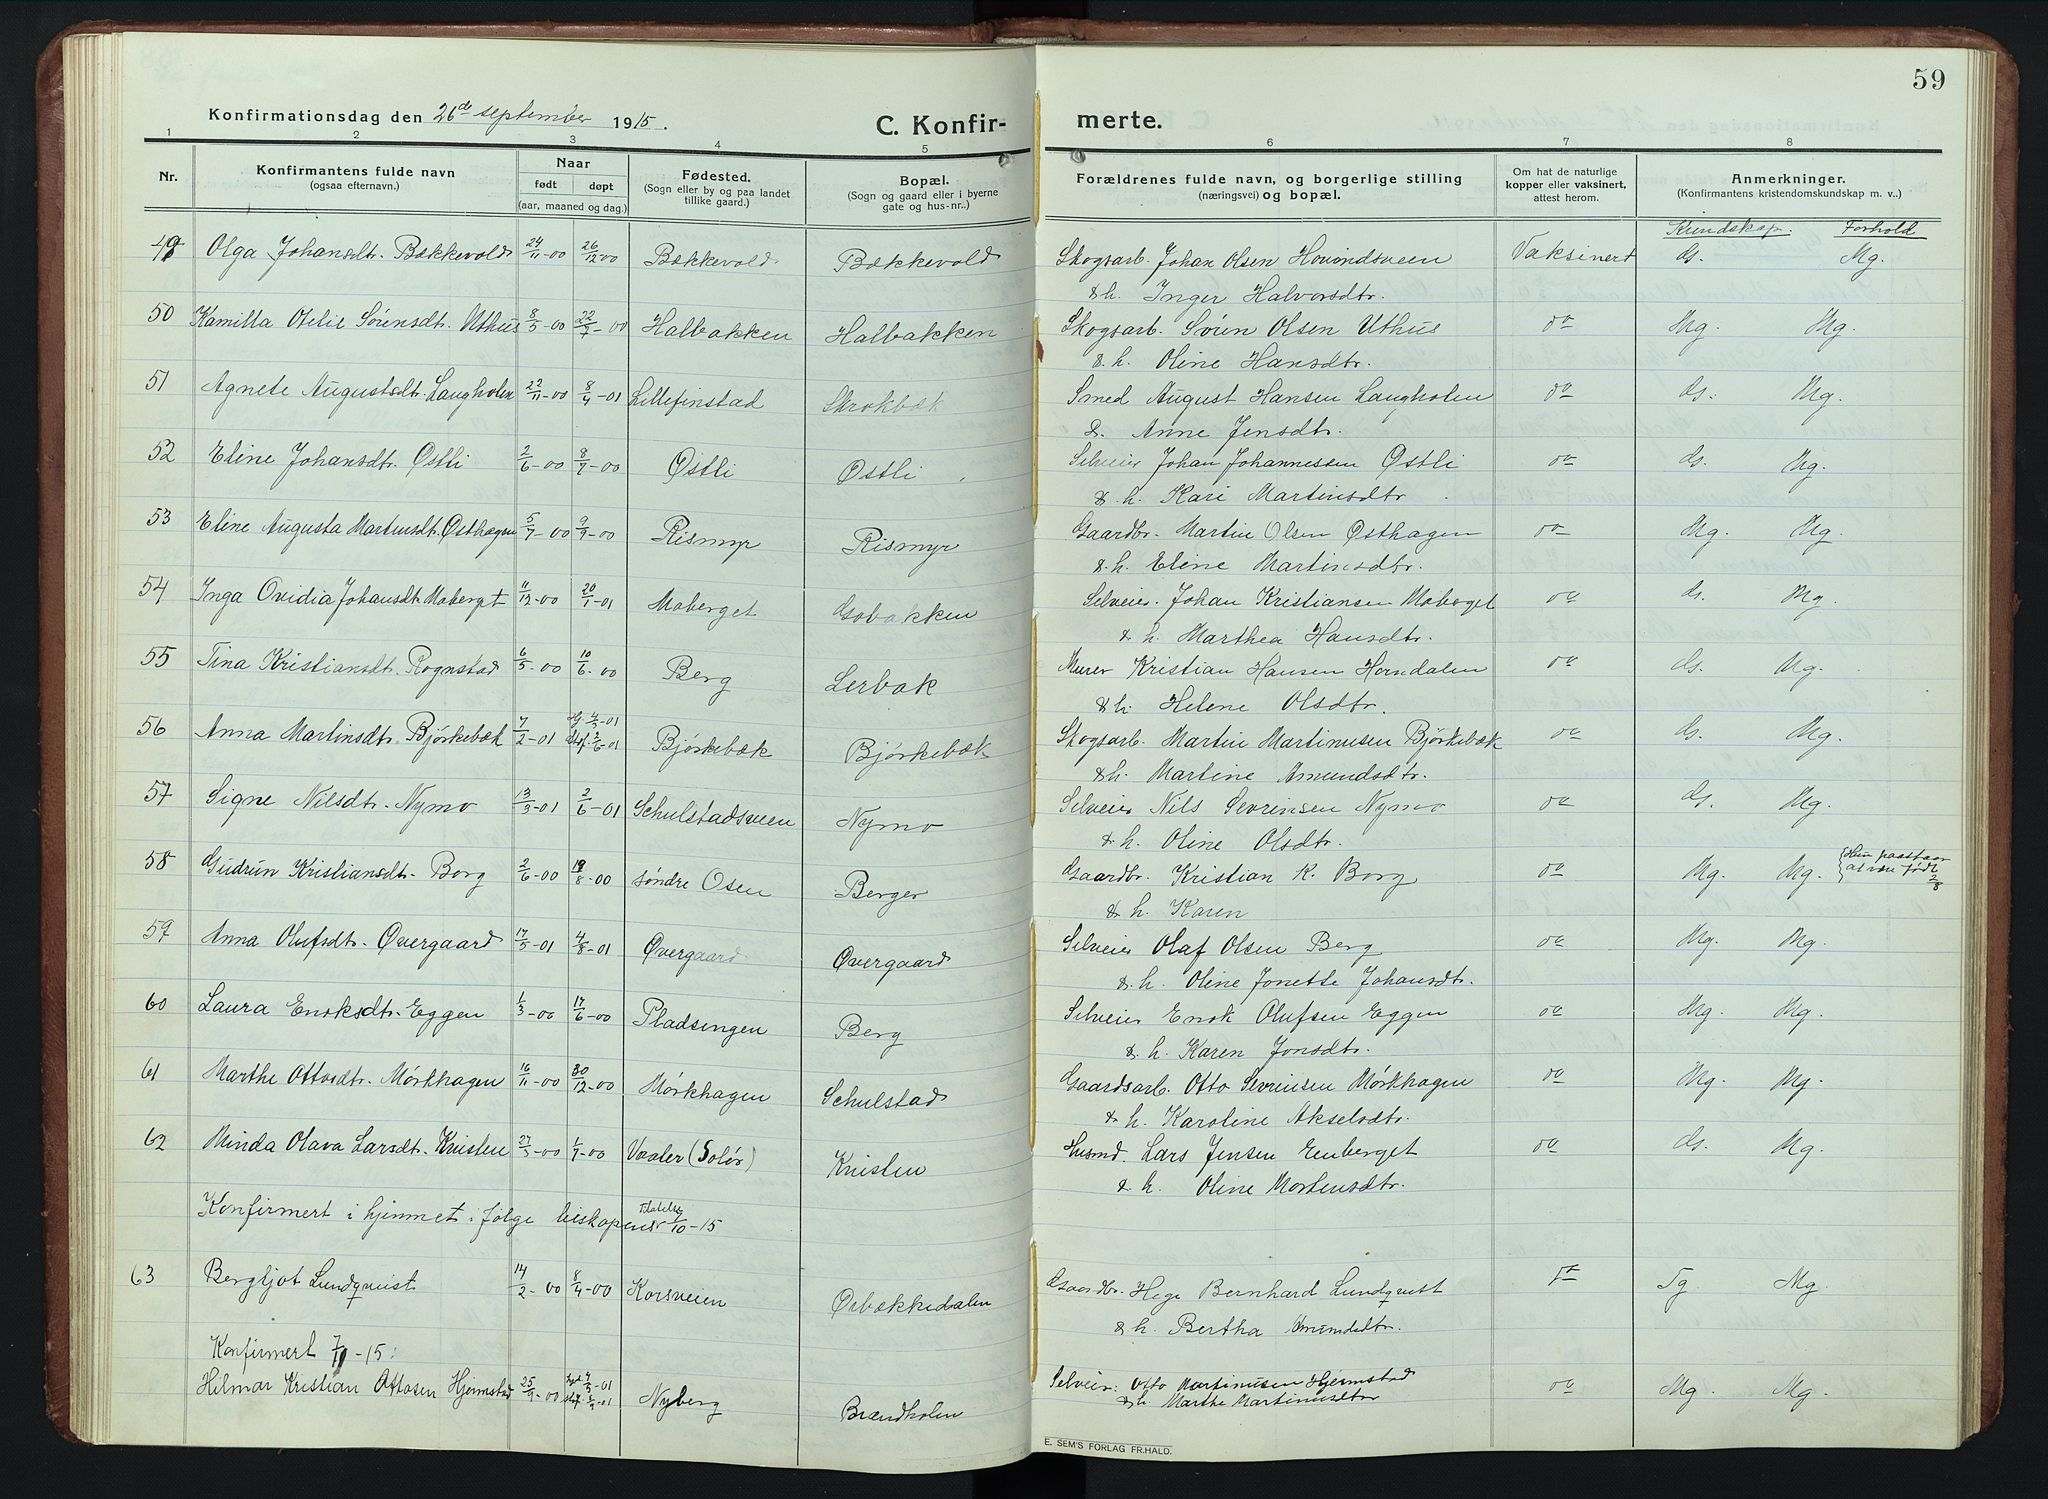 59
Konfirmationsdag den 26de september 1915.
C. Konfir-
merte.
1 2 3 4 5 6 7 8
Nr.
Konfirmantens fulde navn
(ogsaa efternavn.)
Naar
født døpt
(aar, maaned og dag.)
Fødested.
(Sogn eller by og paa landet
tillike gaard.)
Bopæl.
(Sogn og gaard eller i byerne
gate og hus-nr..)
Forældrenes fulde navn, og borgerlige stilling
(næringsvei) og bopæl.
Om hat de naturlige
kopper eller vaksinert,
attest herom.
Anmerkninger.
(Konfirmantens kristendomskundskap m. v..)
Kundskap. Forhold
49 Olga Johansdtr. Bækkevold 24/11-00 26/12 00 Bækkevold Bækkevold Skogsarb. Johan Olsen Hovindsveen Vaksinert ds. Mg.
& h. Inger Halvorsdtr.
50 Kamilla Otelie Sørensdt. Uthus 8/5-00 22/7-00 Halbakken Halbakken Skogsarb. Sören Olsen Uthus do Mg. Mg.
& h. Oline Hansdtr.
51 Agnete Augustsdt. Laugholen 22/11-00 8/4-01 Lillefinstad Skrokbæk Smed August Hansen Laugholen do ds. Mg.
& Anne Jensdtr.
52 Eline Johansdtr. Østli 2/6-00 8/7-00 Østli Østli Selveier Johan Johannessen Østli do ds. Mg.
& h. Kari Martinsdtr.
53 Eline Augusta Martinsdt. Østhagen 5/7-00 9/9-00 Rismyr Rismyr Gaardbr. Martin Olsen Østhagen do Mg. Mg.
& h. Eline Martinsdtr.
54 Inga Ovidia Johansdt. Moberget 11/12-00 20/1-01 Moberget Gobakken Selveier. Johan Kristiansen Moberget do ds. Mg.
& h. Marthea Hansdtr.
55 Tina Kristiansdt. Rognstad 6/5-00 10/6-00 Berg Lerbak Murer Kristian Hansen Horndalen do ds. Mg.
& h. Helene Olsdtr.
56 Anna Martinsdtr. Bjørkebæk 7/2-01 Bjørkebæk Bjørkebæk Skogsarb. Martin Martinusen Bjørkebæk do ds. Mg.
& h. Martine Amundsdtr.
57 Signe Nilsdtr. Nymo 13/3-01 2/6-01 Schulstadsveen Nymo Selveier Nils Sevrinsen Nymo do ds. Mg.
& h. Oline Olsdtr.
58 Gudrun Kristiansdt. Borg 2/6-00 19/8-00 søndre Osen Berger Gaardbr. Kristian K. Borg do Mg. Mg. Hun paastaar
at være født 2/8
& h. Karen
59 Anna Olufsdtr. Øvergaard 17/5-01 4/8-01 Øvergaard Øvergaard Selveier Olaf Olsen Berg do Mg. Mg.
& h. Oline Jonette Johansdtr.
60 Laura Enoksdtr. Eggen 1/3-00 17/6-00 Pladsingen Berg Selveier Enok Olufsen Eggen do Mg. Mg.
& h. Karen Jonsdtr.
61 Marthe Ottosdtr. Mørkhagen 16/11-00 30/12-00 Mørkhagen Schulstad Gaardsarb. Otto Sevrinsen Mørkhagen do Mg. Mg.
& h. Karoline Akselsdtr.
62 Minda Olava Larsdt. Knisten 27/5-00 1/7-00 Vaaler (Solör) Knisten Husmd. Lars Jensen Eenberget do ds. Mg.
& h. Oline Mortensdtr.
Konfirmert i hjemmet i følge biskopens Tilatelse /10-15
63 Bergljot Lundqvist 14/2-00 8/4-00 Korsveien Ørbækkedalen Gaardbr. Hege Bernhard Lundqvist Tg. Mg.
& h. Bertha Amundsdtr.
Konfirmert -15:
Hilmar Kristian Ottosen Hjemstad 25/9-00 Nyberg Brændholen Selveier: Otto Martinusen Hjemstad do Mg. Mg.
& h. Marthe Martinusdtr
E. SEM'S FORLAG FR.HALD.